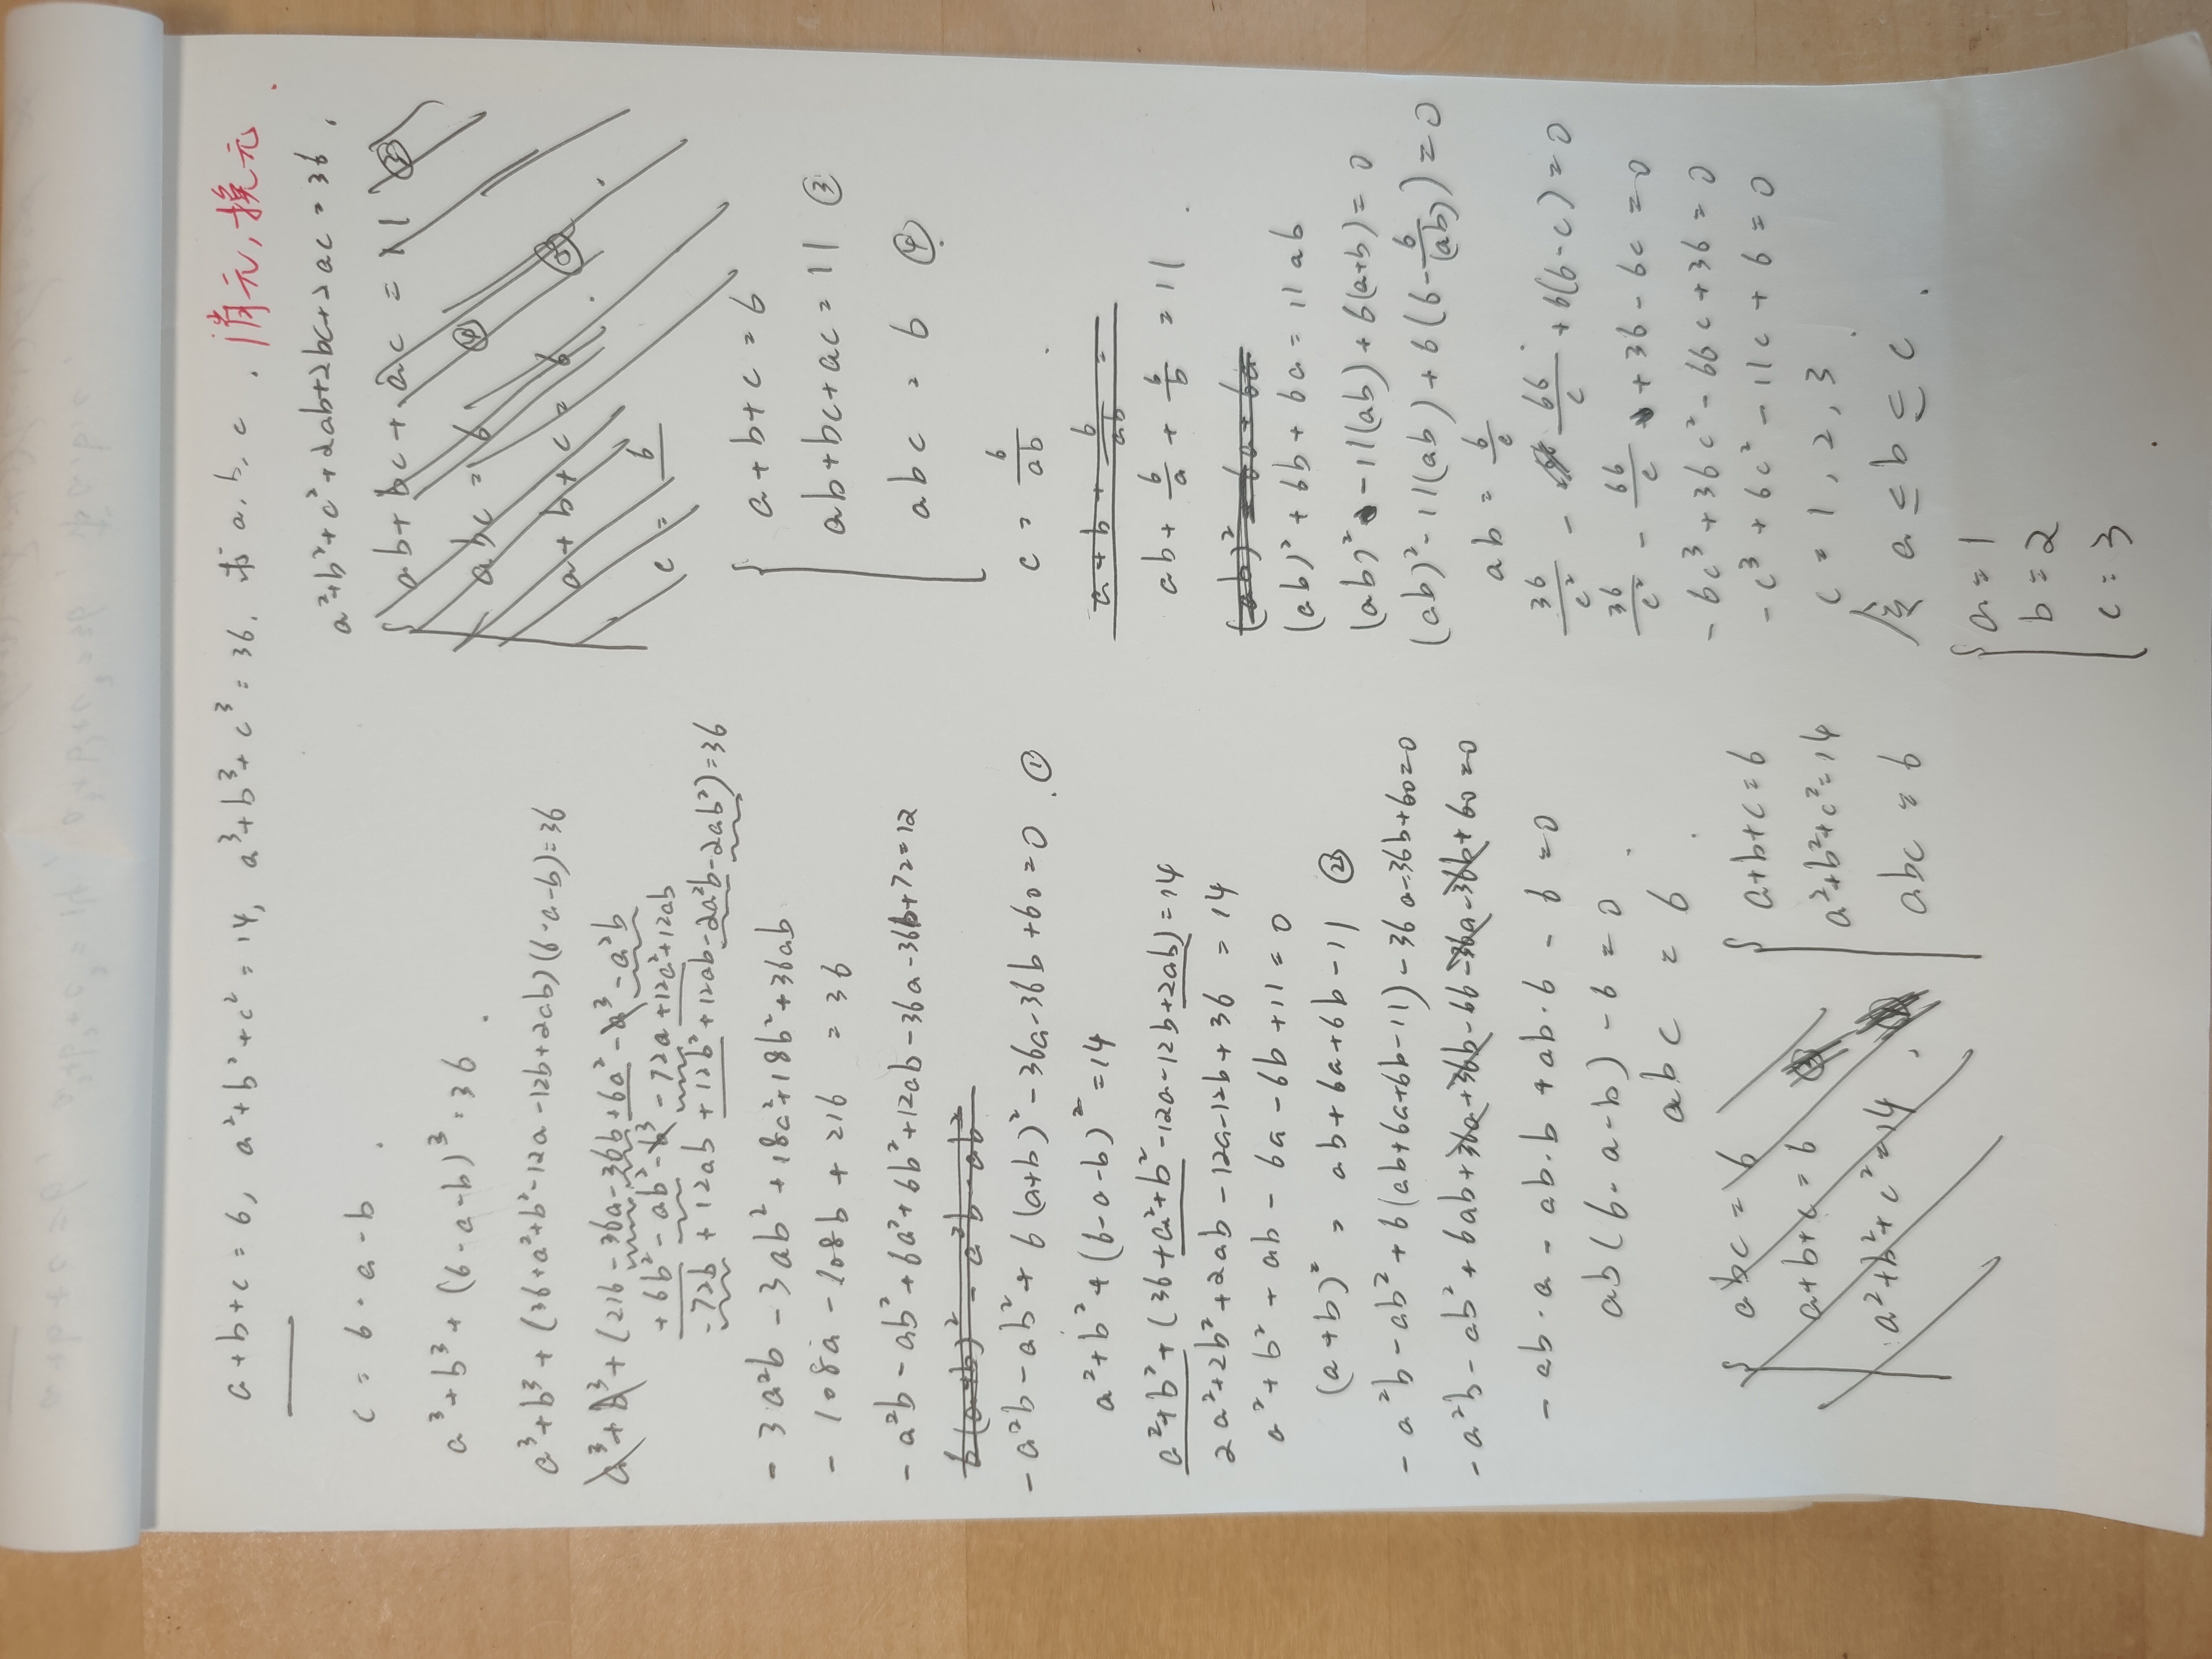 a+b+c=6, a²+b²+c²=14, a³+b³+c³=36. 求 a. b. c . 消元, 换元.
c = 6-a-b .
a³+b³+(6-a-b)³=36 .
a³+b³+(36+a²+b²-12a-12b+2ab)(6-a-b)=36
a³+b³+(216-36a-36b+6a²-a³-a²b
+6b²-ab²-b³-72a+12a²+12ab
-72b+12ab+12b²+12ab-2a²b-2ab²)=36
-3a²b-3ab²+18a²+18b²+36ab
-108a-108b+216 = 36
-a²b-ab²+6a²+6b²+12ab-36a-36b+72=12
6(a+b)²-a²b-ab²
-a²b-ab²+6(a+b)²-36a-36b+60=0 . ①
a²+b²+(6-a-b)²=14
a²+b²+(36+a²+b²-12a-12b+2ab)=14
2a²+2b²+2ab-12a-12b+36 = 14
a²+b²+ab-6a-6b+11=0
(a+b)² = ab+6a+6b-11 ②
-a²b-ab²+6(ab+6a+6b-11)-36a-36b+60=0
-a²b-ab²+6ab+36a+36b-66-36a-36b+60=0
-ab·a-ab·b+ab·6-6=0
ab(6-a-b)-6=0 .
abc = 6 .
abc = 6
a+b+c=6 ③
a²+b²+c²=14 .
a+b+c=6
a²+b²+c²=14
abc = 6
a²+b²+c²+2ab+2bc+2ac=36 .
ab+bc+ac = 11 ③
abc = 6 ④
a+b+c = 6 .
c = 6/
a+b+c=6
ab+bc+ac=11 ③
abc = 6 ④
c = 6/ab .
a+b+6/ab =
ab+6/a+6/b =11 .
(ab)²-6a+6a
(ab)²+6b+6a=11ab
(ab)²-11(ab)+6(a+b)=0
(ab)²-11(ab)+6(6-6/(ab))=0
ab = 6/c
36/c² - 66/c +6(6-c)=0
36/c² - 66/c +36-6c=0
-6c³+36c²-66c+36=0
-c³+6c²-11c+6=0
c = 1, 2, 3 .
令 a≤b≤c .
a=1
b=2
c=3 .